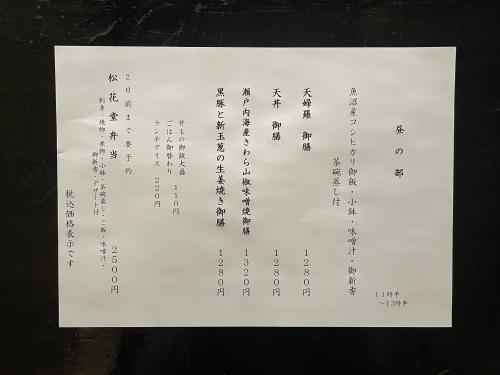 昼の部
１１時半
～１３時半
魚沼産コシヒカリ御飯・小鉢・味噌汁・御新香
茶碗蒸し付
天婦羅　御膳　１２８０円
天丼　御膳　１２８０円
瀬戸内海産さわら山椒味噌焼御膳　１３２０円
黒豚と新玉葱の生姜焼き御膳　１２８０円
丼もの御飯大盛
ごはん御替わり　１１０円
ランチアイス　２２０円
２日前まで要予約
松花堂弁当　２５００円
刺身・焼物・煮物・小鉢・茶碗蒸し・ご飯・味噌汁・
御新香・デザート付
税込価格表示です